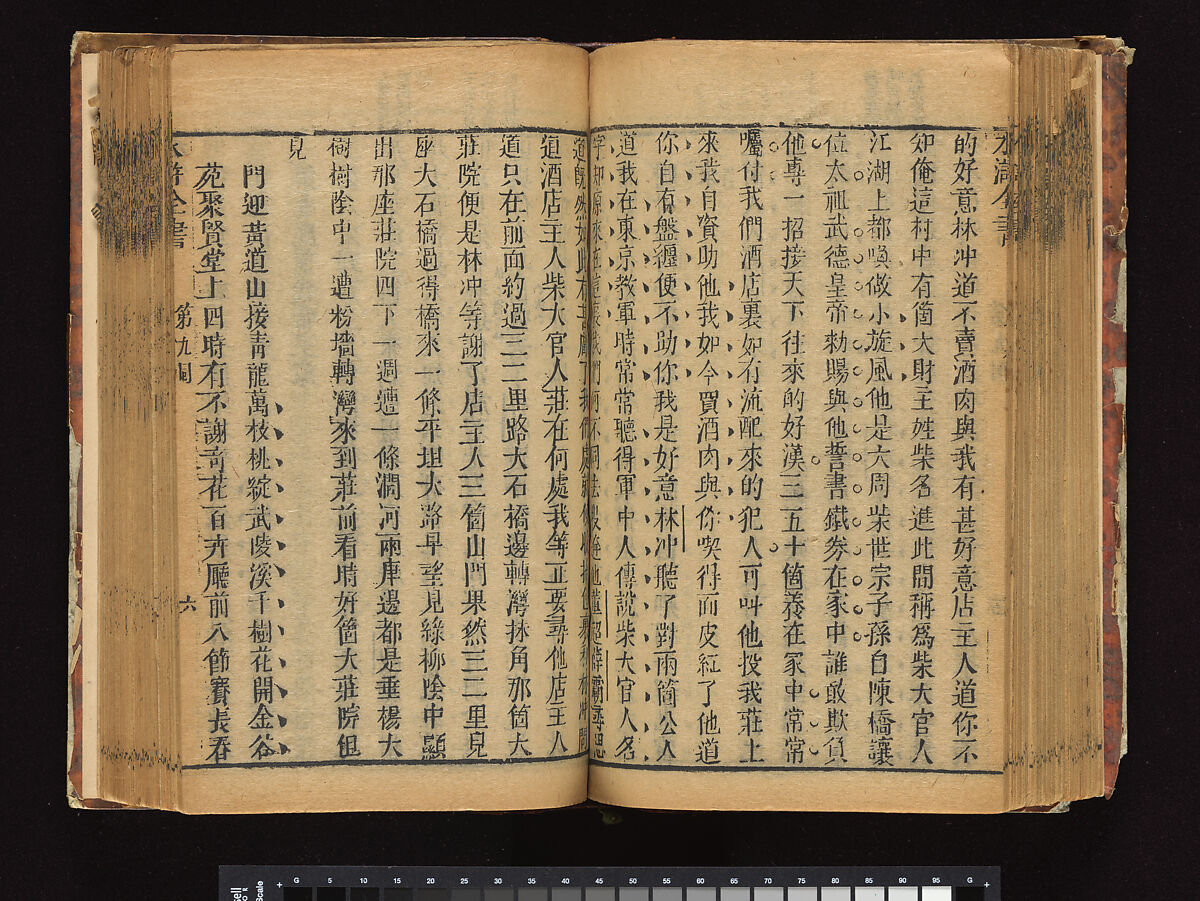 水滸全書
的好意林冲道不賣酒肉與我有甚好意店主人道你不
知俺這村中有箇大財主姓柴名進此間稱爲柴大官人
江湖上都喚做小旋風他是大周柴世宗子孫自陳橋讓
位太祖武德皇帝勑賜與他誓書鐵劵在家中誰敢欺負
他專一招接天下往來的好漢三五十箇養在家中常常
囑付我們酒店裏如有流配來的犯人可叫他投我莊上
來我自資助他我如今買酒肉與你喫得面皮紅了他道
你自有盤纏便不助你我是好意林冲聽了對兩箇公人
道我在東京教軍時常常聽得軍中人傳說柴大官人名
字却原來在這裏我們何不同去投奔他董超薛霸尋思
道既然如此有甚
道酒店主人柴大官人莊在何處我等正要尋他店主人
道只在前面約過三二里路大石橋邊轉灣抹角那箇大
莊院便是林冲等謝了店主人三箇出門果然三二里見
座大石橋過得橋來一條平坦大路早望見綠柳陰中顯
出那座莊院四下一週遭一條濶河兩岸邊都是垂楊大
樹樹陰中一遭粉墻轉灣來到莊前看時好箇大莊院但
見
門迎黃道山接青龍萬枝桃綻武陵溪千樹花開金谷
苑聚賢堂上四時有不謝竒花百卉廳前八節賽長春
水滸全書 第九囘 六
G 5 10 15 20 25 30 35 40 45 50 55 60 65 70 75 80 85 90 95 G